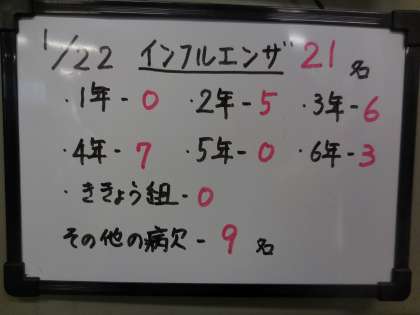 1/22 インフルエンザ 21名
・1年-0 ・2年-5 ・3年-6
・4年-7 ・5年-0 ・6年-3
・ききょう組-0
その他の病欠-9名